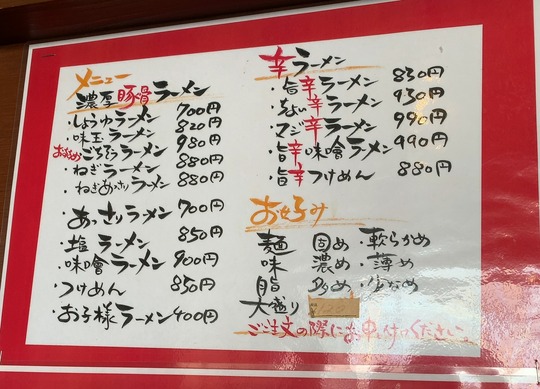 メニュー
濃厚豚骨ラーメン
・しょうゆラーメン 700円
・味玉ラーメン 820円
おすすめ ごちそうラーメン 980円
・ねぎラーメン 880円
・ねぎあっさりラーメン 880円
・あっさりラーメン 700円
・塩ラーメン 850円
・味噌ラーメン 900円
・つけめん 850円
・お子様ラーメン 400円
辛ラーメン
・旨辛ラーメン 830円
・ちょい辛ラーメン 930円
・マジ辛ラーメン 990円
・旨辛味噌ラーメン 990円
・旨辛つけめん 880円
お好み
麺 固め ・軟らかめ
味 濃め ・薄め
脂 多め ・少なめ
大盛り
ご注文の際にお申しつけください。